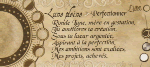 Lune pleine ~ Perfectionner
Ronde Lune, mère en gestation,
Tu améliores ta création.
Sous ta lueur argentée,
Aspirant à la perfection,
Mes ambitions sont évaluées,
Mes projets, achevés.